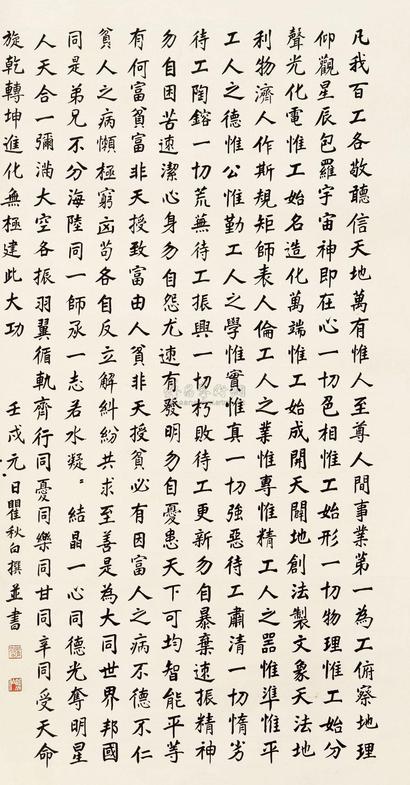 凡我百工各敬聽信天地萬有惟人至尊人間事業第一為工俯察地理
仰觀星辰包羅宇宙神即在心一切色相惟工始形一切物理惟工始分
聲光化電惟工始名造化萬端惟工始成開天闢地創法製文象天法地
利物濟人作斯規矩師表人倫工人之業惟專惟精工人之器惟準惟平
工人之德惟公惟勤工人之學惟實惟真一切強惡待工肅清一切惰劣
待工陶鎔一切荒蕪待工振興一切朽敗待工更新勿自暴棄速振精神
勿自困苦速潔心身勿自怨尤速有發明勿自憂患天下可均智能平等
有何富貧富非天授致富由人貧非天授貧必有因富人之病不德不仁
貧人之病懶極窮凶苟各自反立解糾紛共求至善是為大同世界邦國
同是弟兄不分海陸同一師承一志若水凝〻結晶一心同德光奪明星
人天合一彌滿大空各振羽翼循軌齊行同憂同樂同甘同辛同受天命
旋乾轉坤進化無極建此大功
壬戌元日瞿秋白撰並書